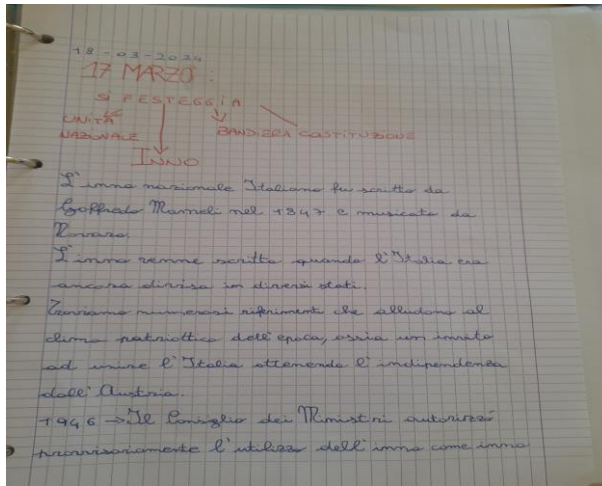 18-03-2024
17 MARZO:
SI FESTEGGIA
UNITÀ NAZIONALE
BANDIERA COSTITUZIONE
INNO
L'inno nazionale Italiano fu scritto da
Goffredo Mameli nel 1847 e musicato da
Novaro.
L'inno venne scritto quando l'Italia era
ancora divisa in diversi stati.
Troviamo numerosi riferimenti che alludono al
clima patriottico dell'epoca, ossia un invito
ad unire l'Italia ottenendo l'indipendenza
dall'Austria.
1946 → Il Consiglio dei Ministri autorizzò
provvisoriamente l'utilizzo dell'inno come inno